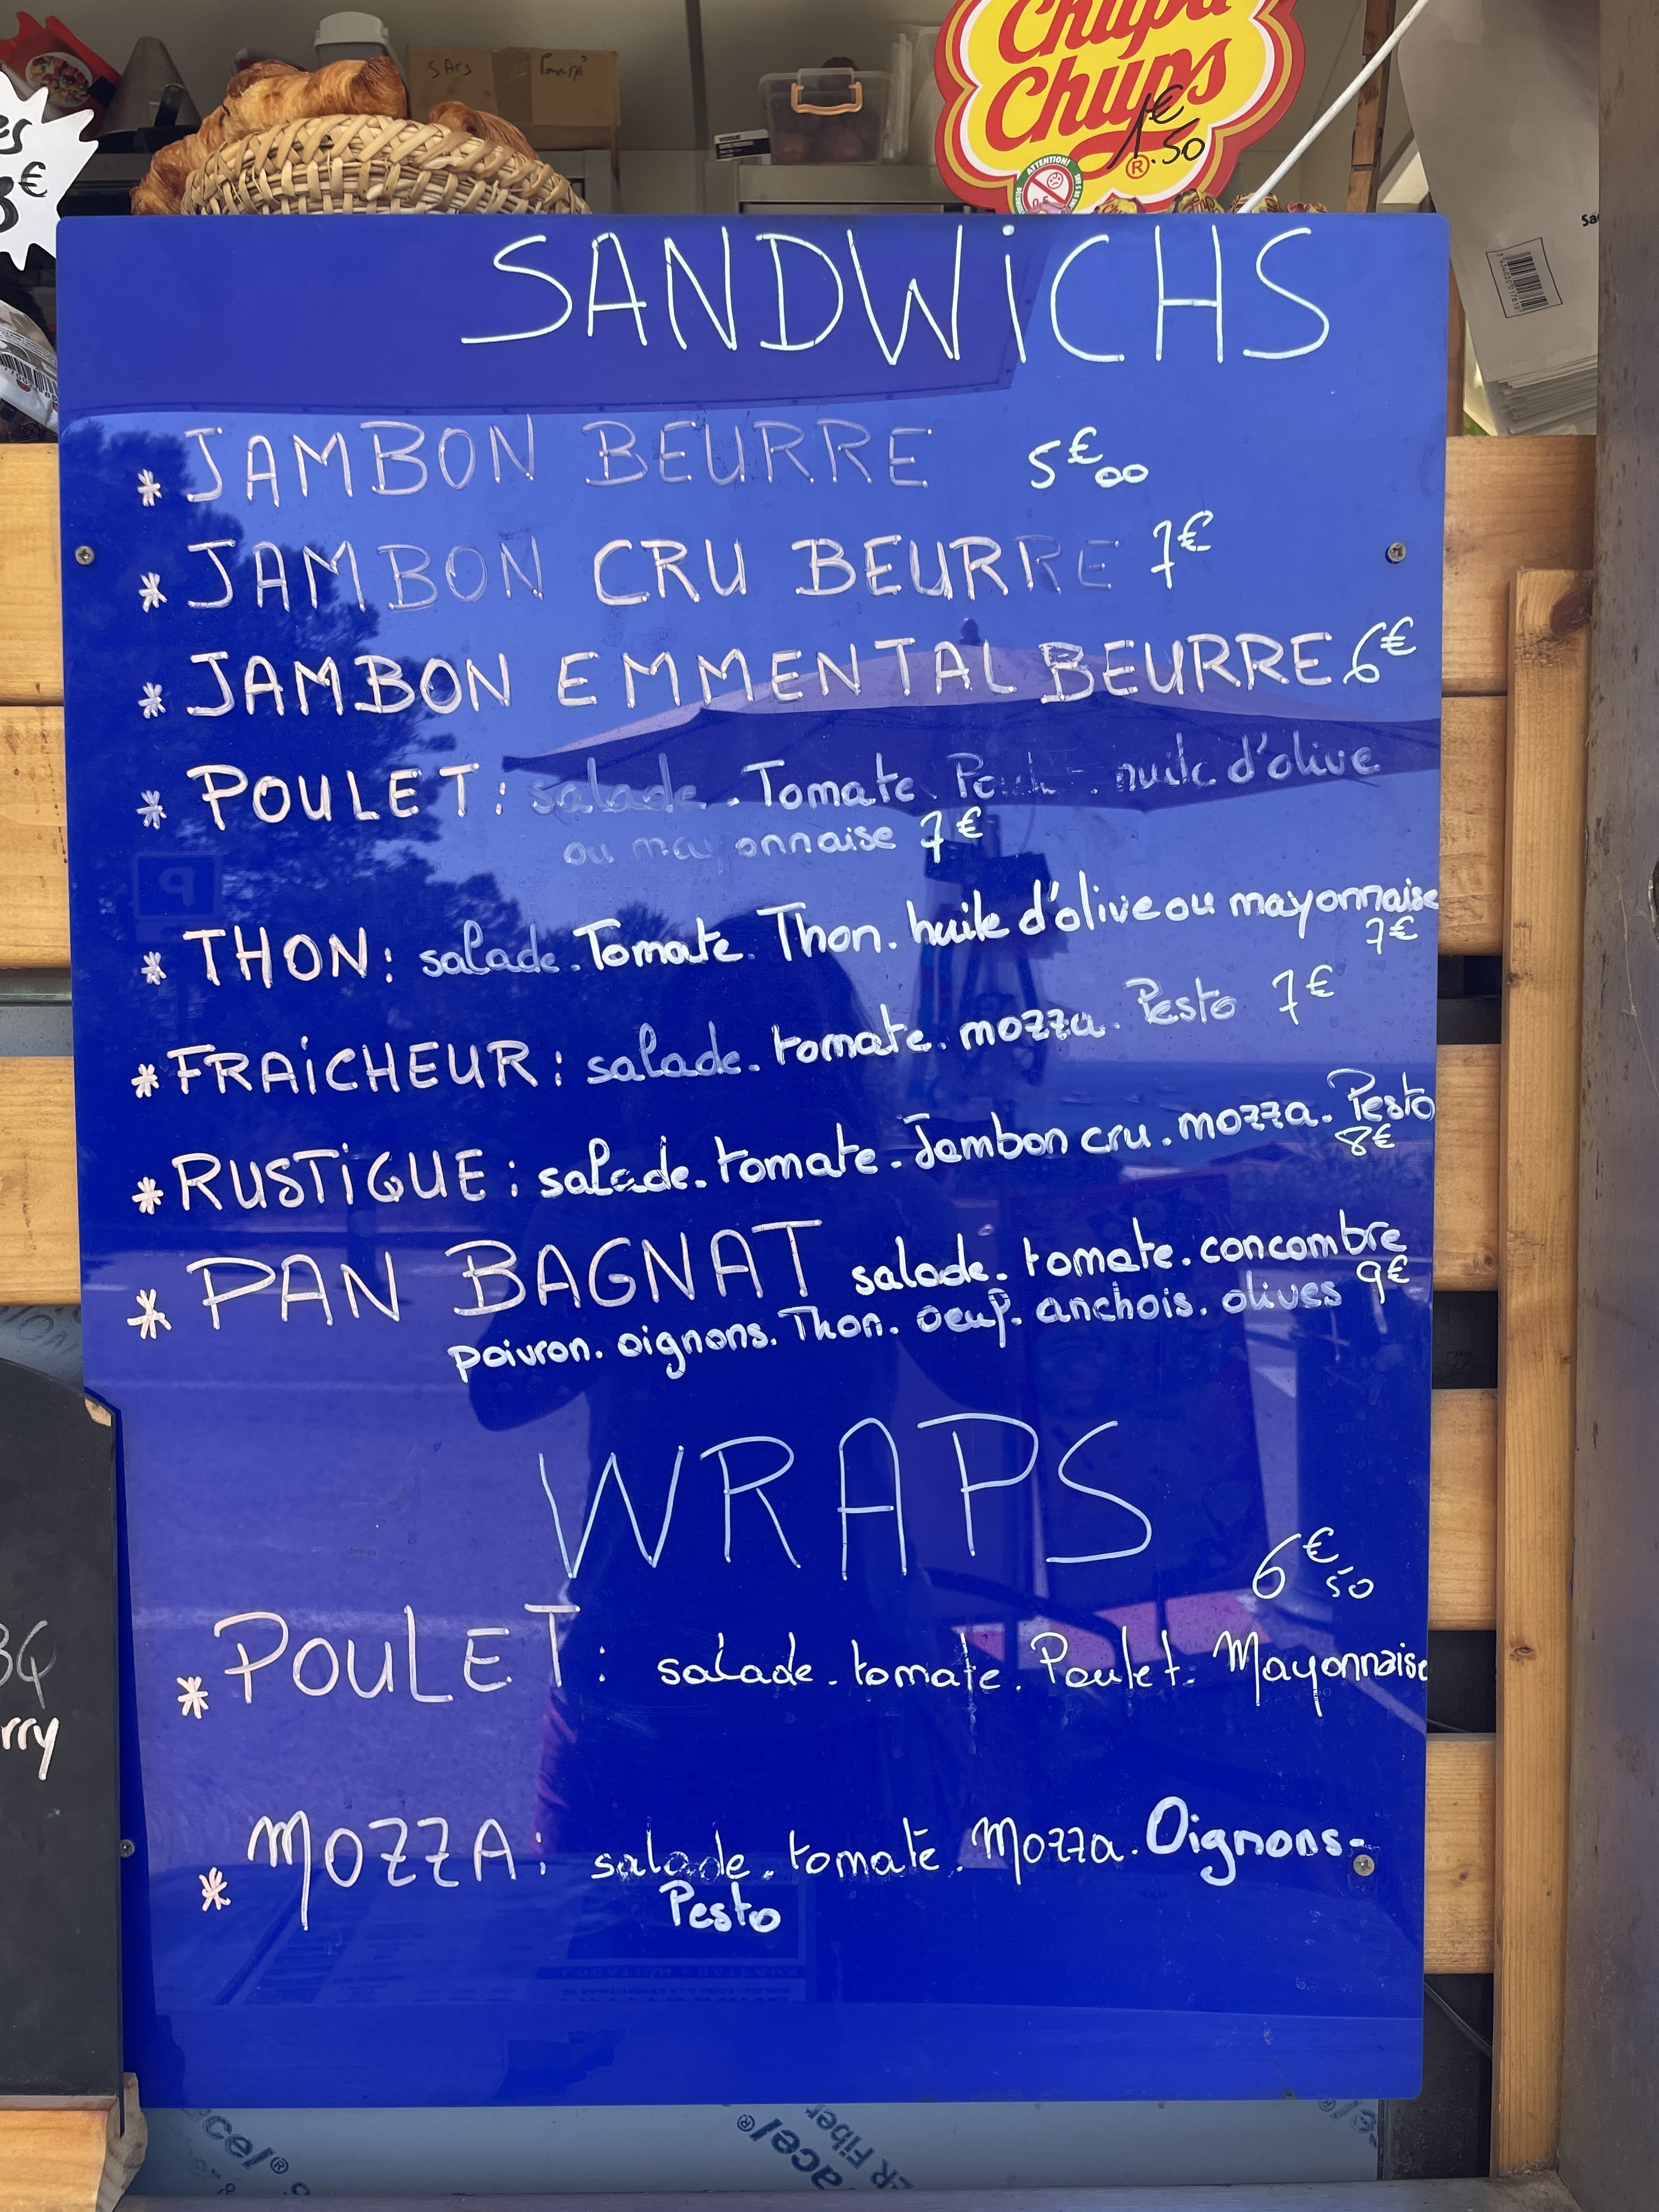 SACS
Chupa
Chups
1€.50
ATTENTION!
es
3€
SANDWiCHS
* JAMBON BEURRE 5€00
* JAMBON CRU BEURRE 7€
* JAMBON EMMENTAL BEURRE 6€
* POULET: salade. Tomate. Poulet. huile d'olive
ou mayonnaise 7€
* THON: salade. Tomate. Thon. huile d'olive ou mayonnaise
7€
* FRAiCHEUR: salade. tomate. mozza. Pesto 7€
* RUSTiQUE: salade. tomate. Jambon cru. mozza. Pesto
8€
* PAN BAGNAT salade. tomate. concombre
9€
poivron. oignons. Thon. oeuf. anchois. olives
WRAPS
6€50
* POULET: salade. tomate. Poulet. Mayonnaise
* MOZZA: salade. tomate. Mozza. Oignons.
Pesto
rry
acel®
acel®
ER Fiber